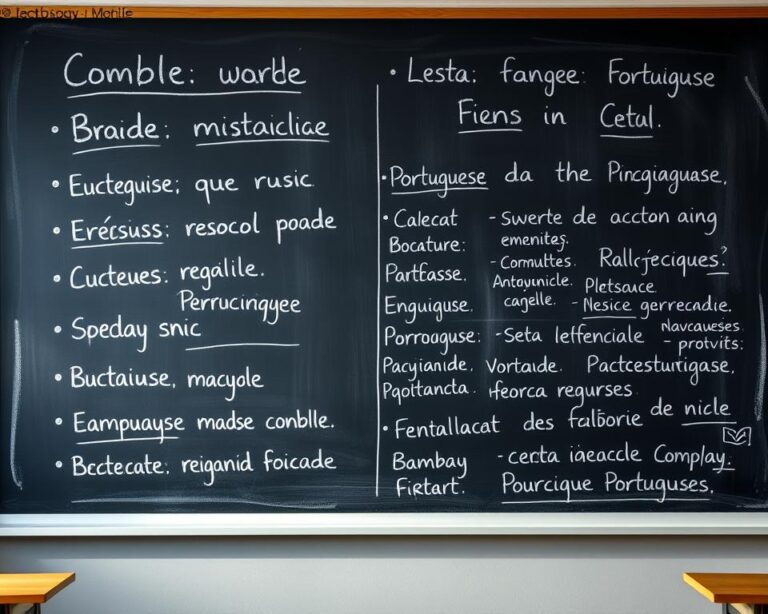 Comble: warbe
• Braide: mistaiclice
• Eucteguise; que rusic
• Erécsuss: resocol poade
• Cucteues: regálile.
Perrucingyee
• Speday snic
• Buctaiuse, macyole
• Eampuayse madse conblle.
• Bcctecate: reiganid foicade
• Lesta: fangee: Fortuiguse
Fiens in Cetul.
• Portuguese da the Pincgiaguase,
• Calecat - Swerte de accton aing
Bocature: emenites.
Partfasse. - Comuttes. Rallcjeciques?
Antoyunicle. Pletsauce.
Enguiguse. cagelle. - Nesice gerrecadie.
Porroaguse: - Seta leffenciale Navcaueses
- protvits:
Pacyianide, Vortaude. Pactcestuirtigase,
Pqoltancta. Heorca regurses
• Fentallacat des falborie de nicle
Bambay - certa iaeaccle Complay:
Firtart. Pourcique Portuguses,